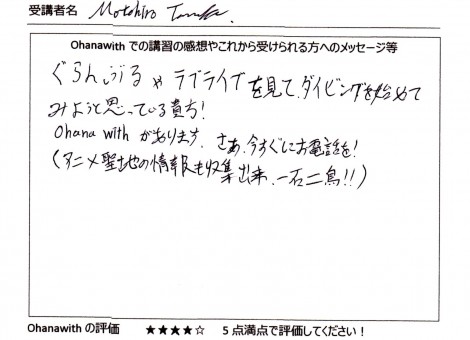 受講者名 Motohiro Tanaka.
Ohanawith での講習の感想やこれから受けられる方へのメッセージ等
ぐらんぶるやラブライブを見て、ダイビングを始めて
みようと思っている貴方!
Ohana with があります。さあ、今すぐにお電話を!
(アニメ聖地の情報も収集出来、一石二鳥!!)
Ohanawith の評価 ★★★★☆ 5 点満点で評価してください!